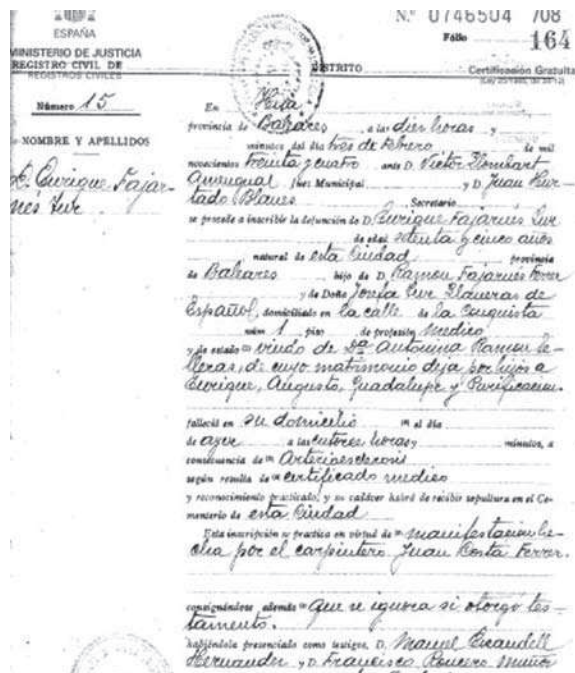 ESPAÑA
MINISTERIO DE JUSTICIA
REGISTRO CIVIL DE
REGISTROS CIVILES
N.º 0746504 /08
Folio 164
DISTRITO
Certificación Gratuita
Número 15
NOMBRE Y APELLIDOS
D. Enrique Fajar-
nés Tur
En Ibiza
provincia de Baleares, a las diez horas y
minutos del día tres de Febrero de mil
novecientos treinta y cuatro ante D. Victor Llombart
Juez Municipal y D. Juan Hur-
tado Blanes Secretario
se procede a inscribir la defunción de D. Enrique Fajarnés Tur
de edad setenta y cinco años
natural de esta Ciudad provincia
de Baleares hijo de D. Ramon Fajarnés Ferrer
y de Doña Josefa Tur Llaneras de
Español, domiciliado en la calle de la Conquista
núm 1 piso de profesión medico
y de estado viudo de Dª Antonina Ramon
de cuyo matrimonio deja por hijos a
Enrique, Augusto, Guadalupe y Purificacion.
falleció en su domicilio el día
de ayer a las catorce horas y minutos, a
consecuencia de Arterioesclerosis
según resulta de certificado medico
y reconocimiento practicado, y su cadáver habrá de recibir sepultura en el Ce-
menterio de esta Ciudad
Esta inscripción se practica en virtud de manifestacion he-
cha por el carpintero Juan Costa Ferrer.
consignándose además que se ignora si otorgó tes-
tamento.
habiéndola presenciado como testigos, D. Manuel Escandell
Hernandez y D. Francisco Roncero Muñoz